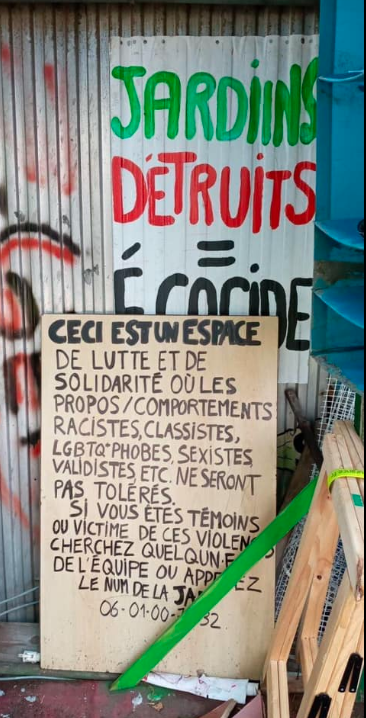 JARDIINS
DÉTRUITS
=
ÉCOCIDE
CECI EST UN ESPACE
DE LUTTE ET DE
SOLIDARITÉ OÙ LES
PROPOS/COMPORTEMENTS
RACISTES, CLASSISTES,
LGBTQ*PHOBES, SEXISTES,
VALIDISTES, ETC. NE SERONT
PAS TOLÉRÉS.
SI VOUS ÊTES TÉMOINS
OU VICTIME DE CES
CHERCHEZ QUELQUN
DE L'ÉQUIPE OU
LE NUM DE LA
06-01-00-